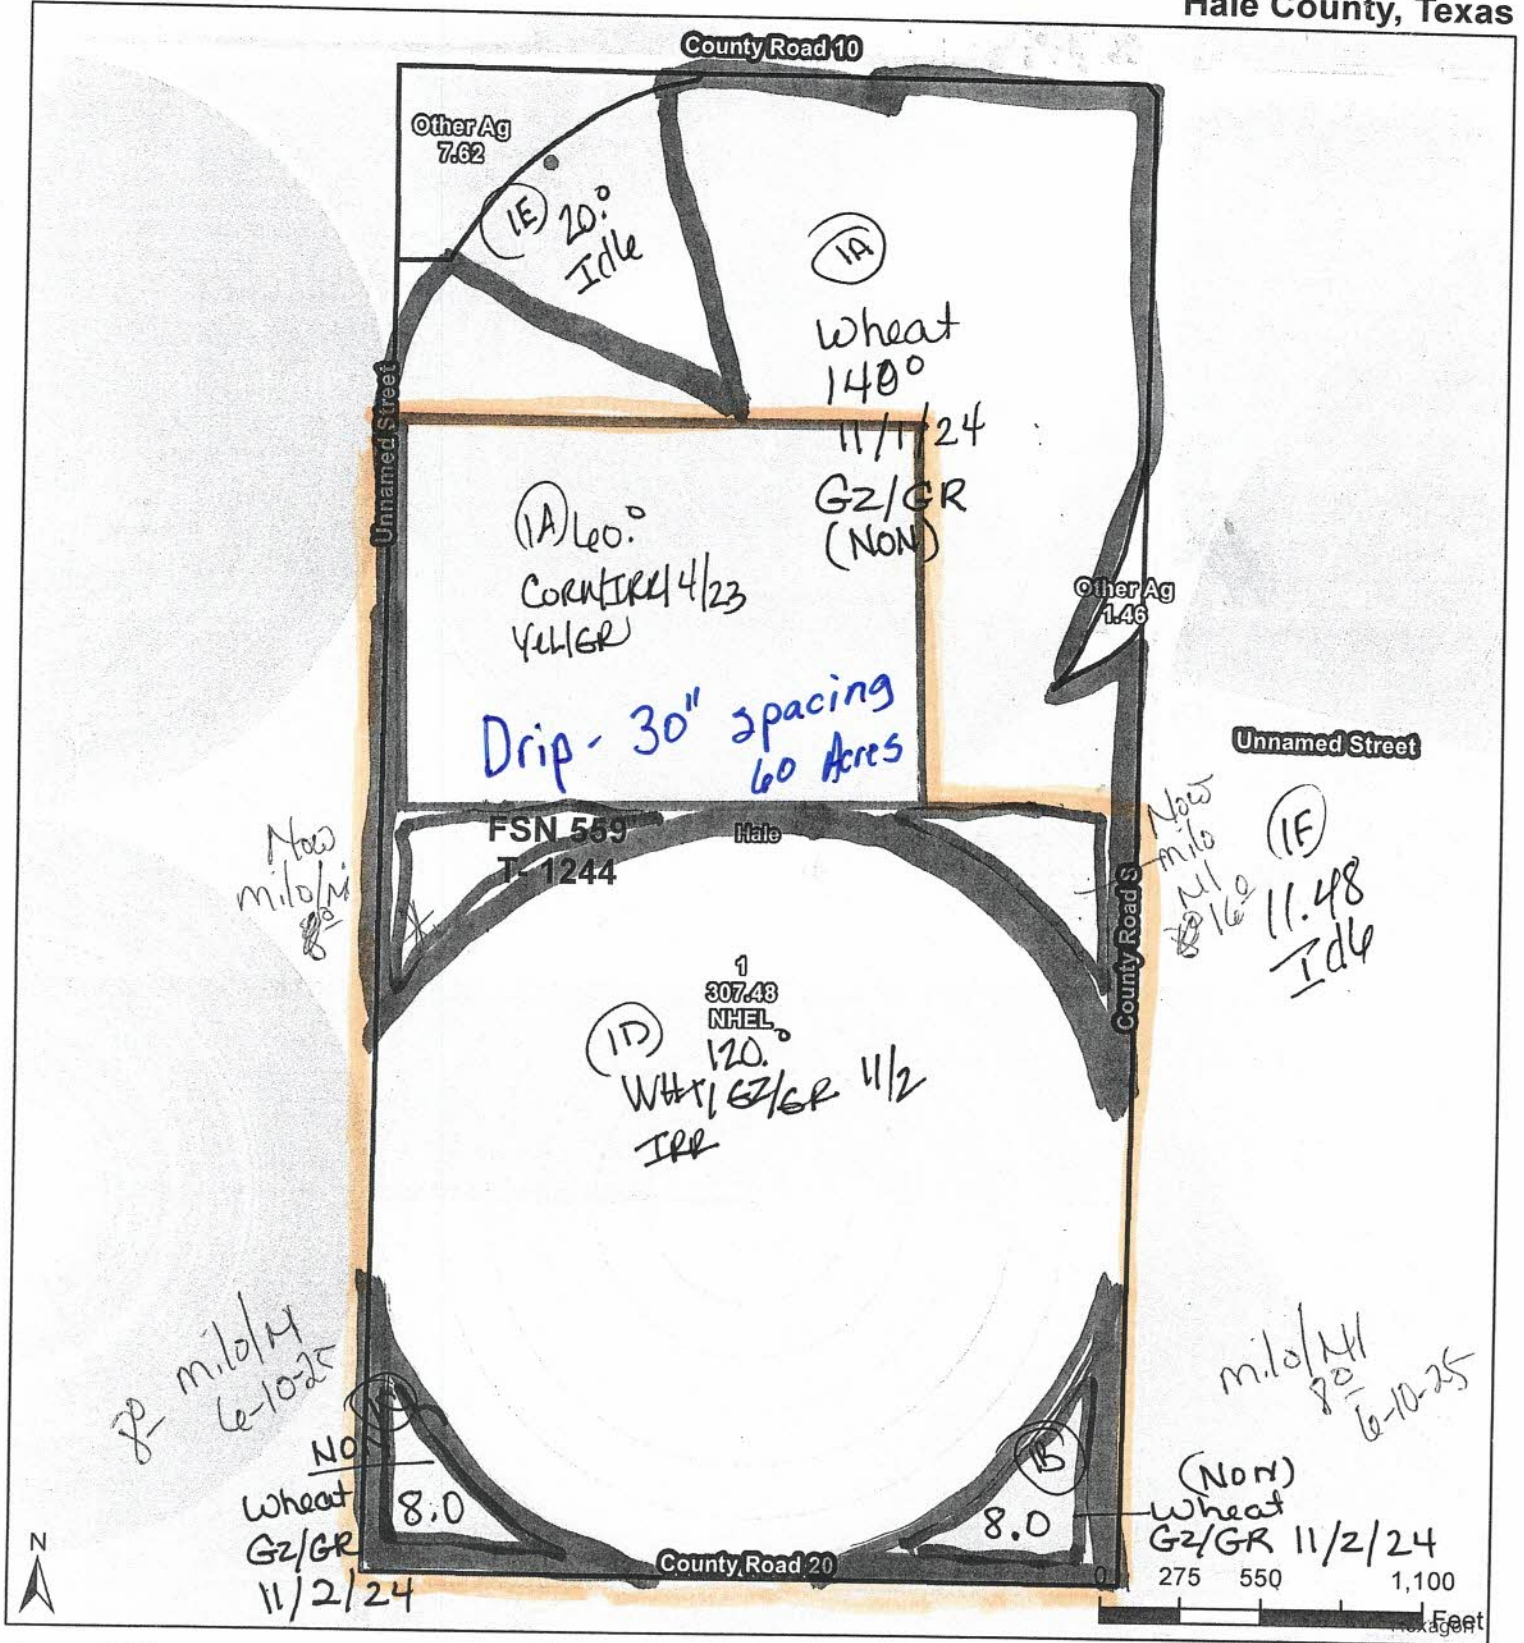 Hale County, Texas
County Road 10
Other Ag
7.62
1E
20.0
Idle
1A
Wheat
140 0
11/1/24
GZ/GR
(NON)
Unnamed Street
1A 60.0
CORN/IRR/4/23
YEL/GR
Drip - 30" spacing
60 Acres
Other Ag
1.46
Unnamed Street
FSN 559
T- 1244
Hale
Now
milo/NI
8 0
Now
milo
NI
16 0
1E
11.48
Idle
County Road S
1
307.48
NHEL
1D
120.0
WHT/GZ/GR 11/2
IRR
milo/NI
8 0
6-10-25
NON
Wheat
GZ/GR
11/2/24
8.0
1B
8.0
milo/NI
8 0
6-10-25
(NON)
Wheat
GZ/GR 11/2/24
County Road 20
N
0 275 550 1,100
Feet
Hexagon